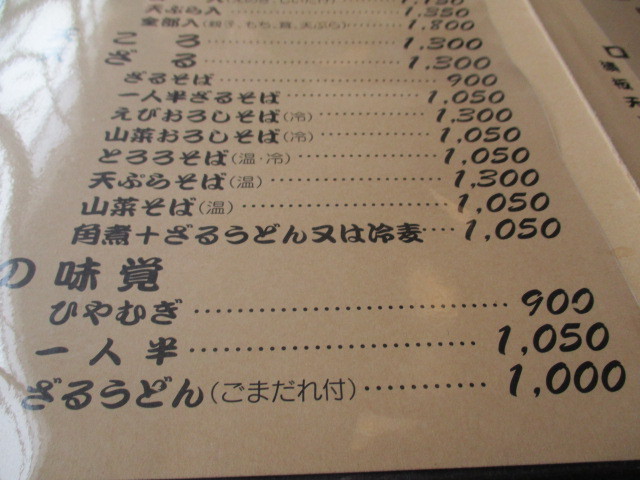 1,150
天ぷら入 1,350
全部入(親子、もち、茸、天ぷら) 1,800
ころ 1,300
ざる 1,300
ざるそば 900
一人半ざるそば 1,050
えびおろしそば(冷) 1,300
山菜おろしそば(冷) 1,050
とろろそば(温・冷) 1,050
天ぷらそば(温) 1,300
山菜そば(温) 1,050
角煮+ざるうどん又は冷麦 1,050
の味覚
ひやむぎ 900
一人半 1,050
ざるうどん(ごまだれ付) 1,000